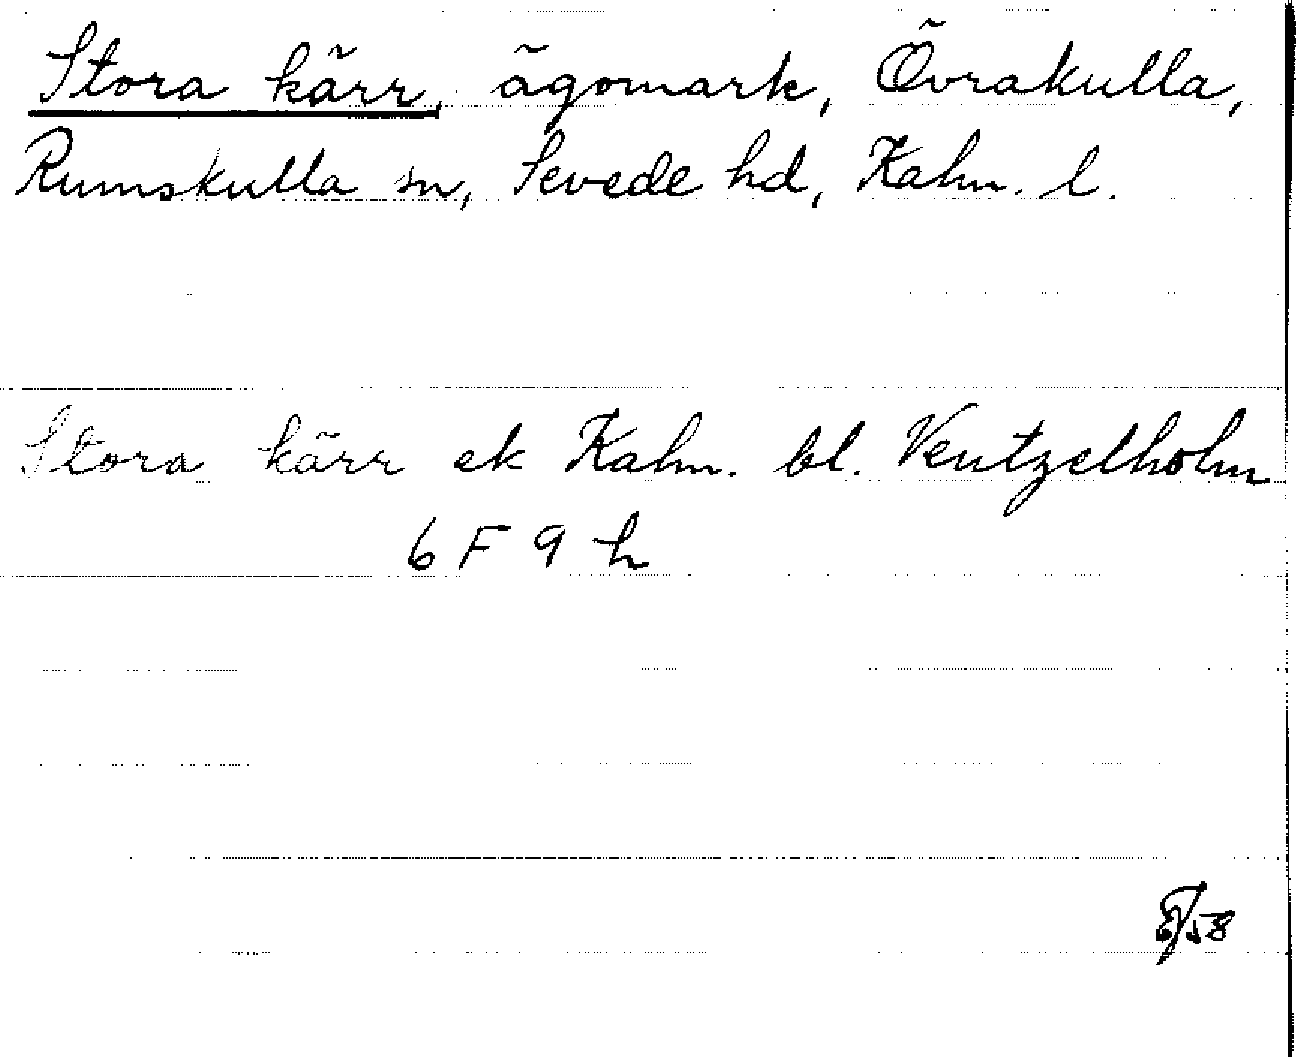 Stora kärr, ägomark, Övrakulla,
Rumskulla sn, Sevede hd, Kalm. l.
Stora kärr ek Kalm. bl. Ventzelholm
6 F 9 h